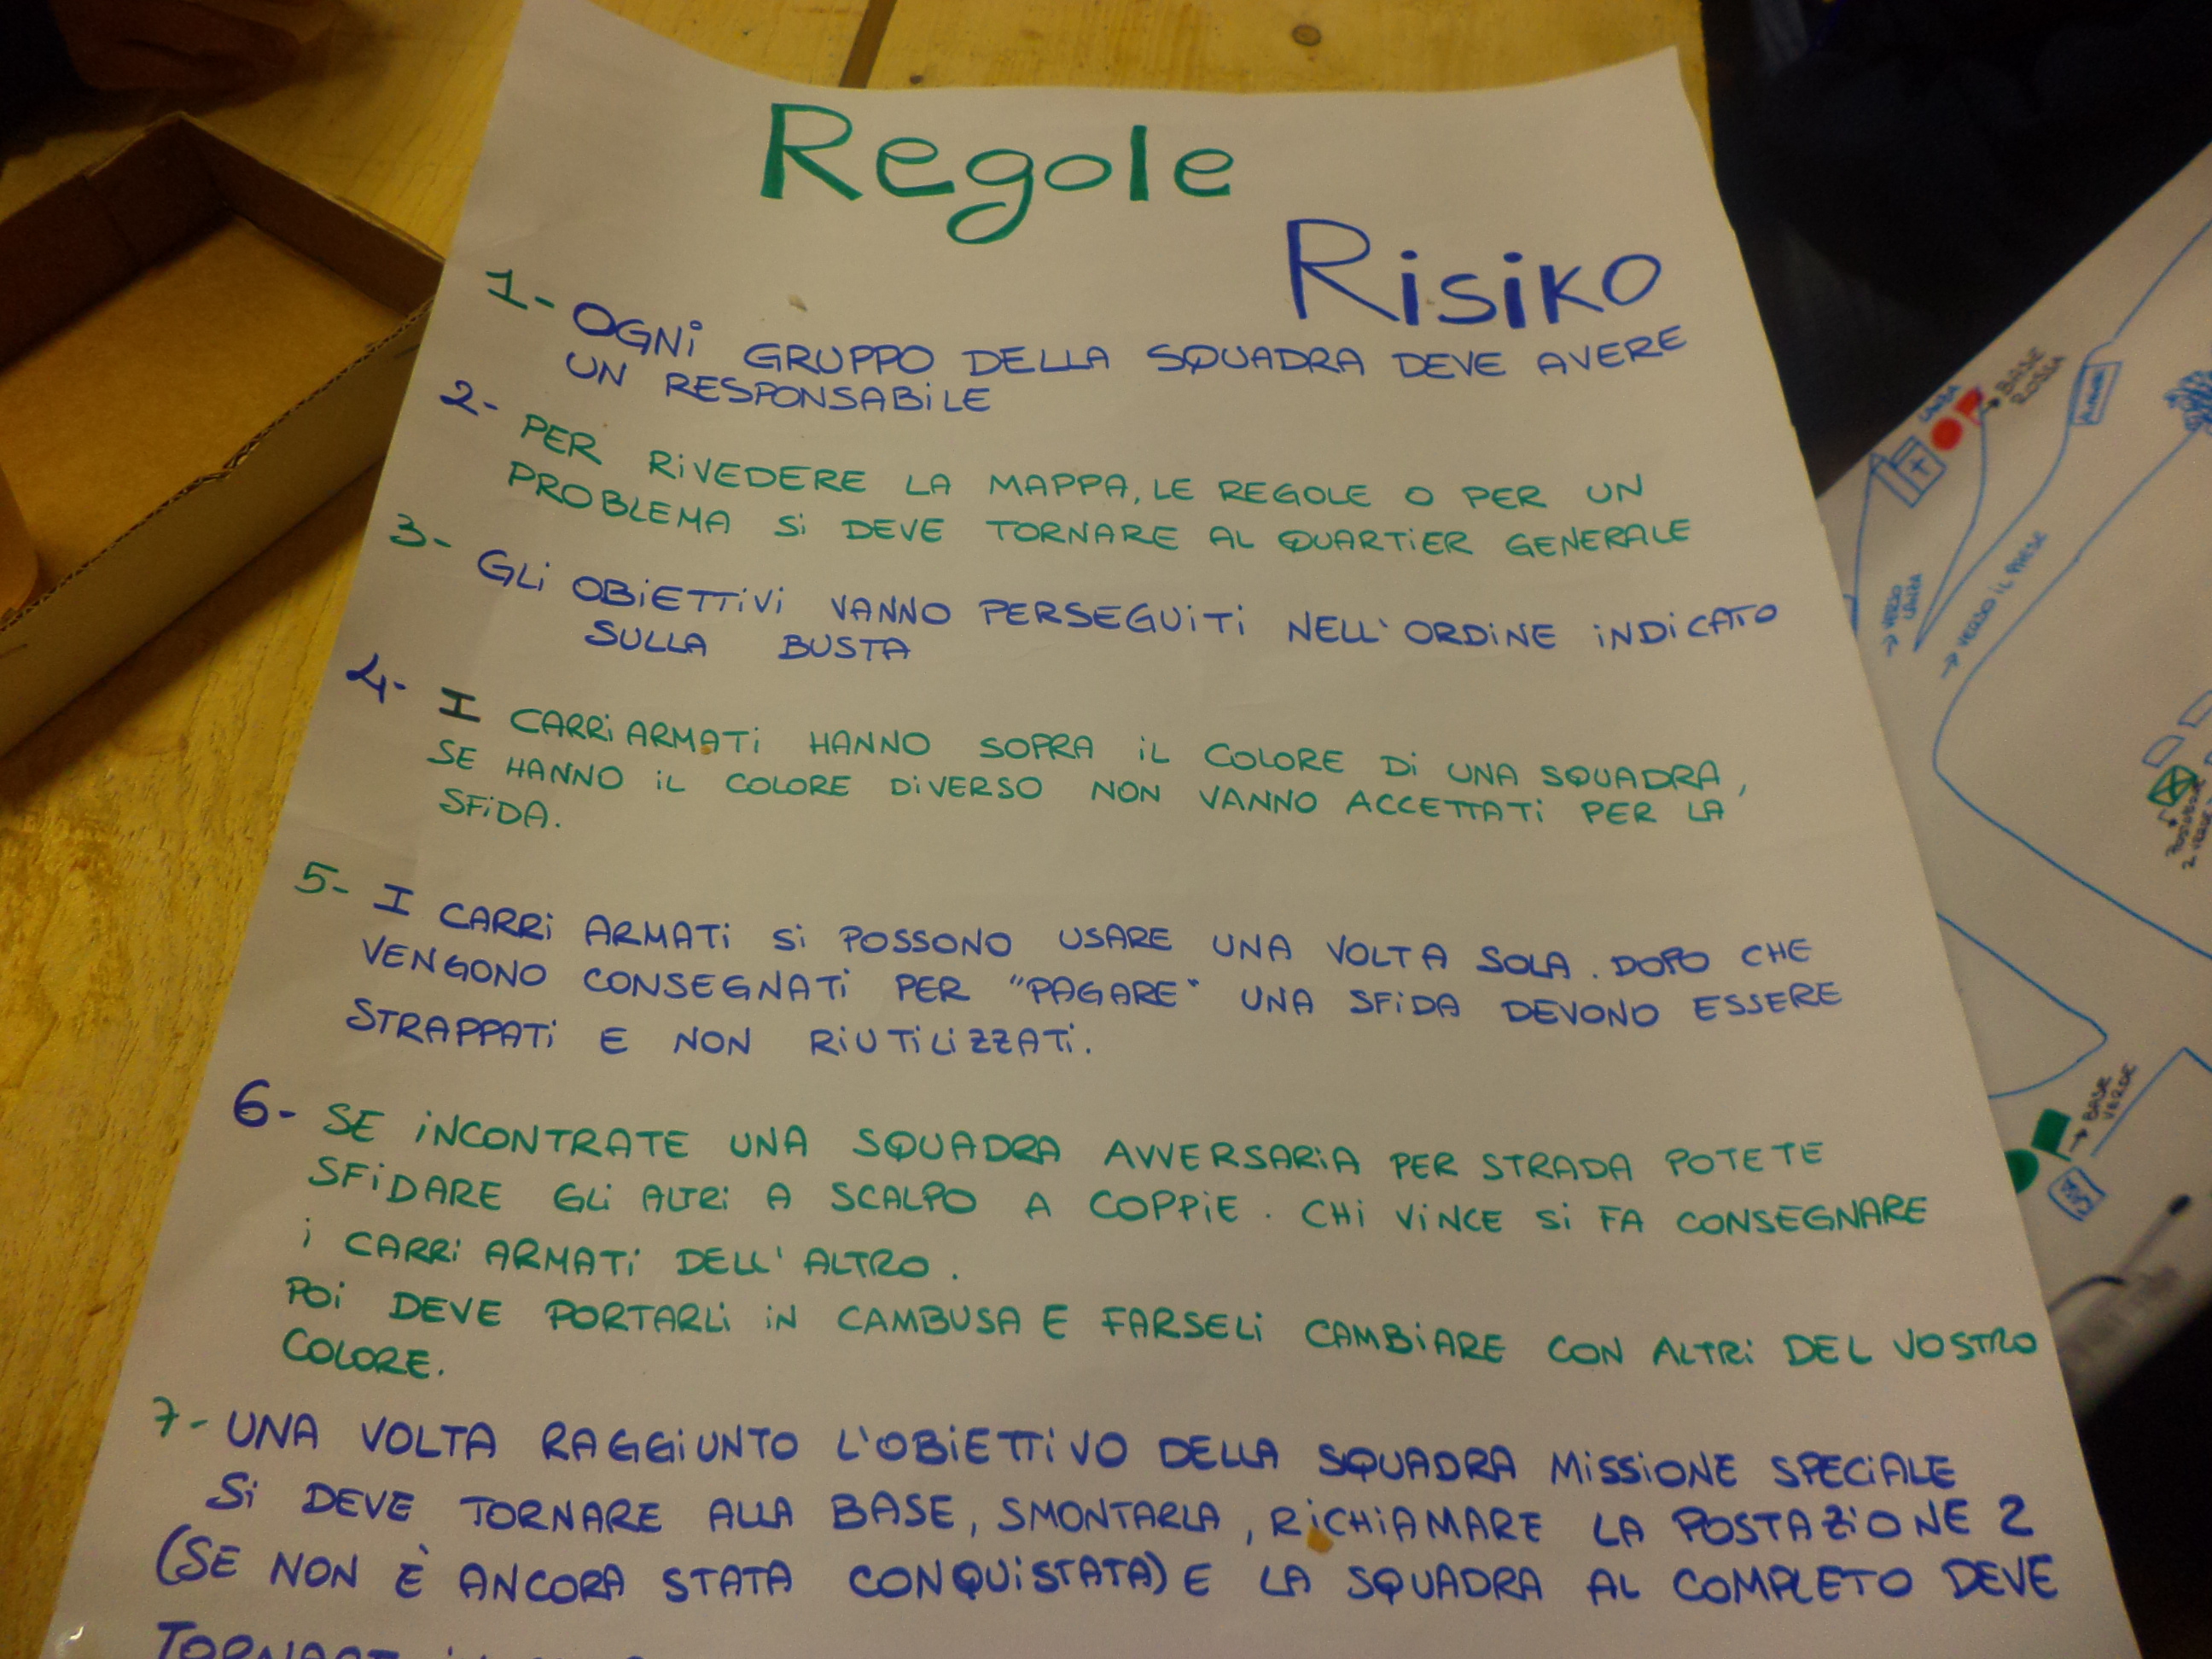 Regole
Risiko
1- OGNi GRUPPO DELLA SQUADRA DEVE AVERE
UN RESPONSABiLE
2- PER RiVEDERE LA MAPPA, LE REGOLE O PER UN
PROBLEMA Si DEVE TORNARE AL QUARTiER GENERALE
3- GLi OBiETTiVi VANNO PERSEGUiTi NELL'ORDiNE iNDiCATO
SULLA BUSTA
4- I CARRi ARMATi HANNO SOPRA iL COLORE Di UNA SQUADRA,
SE HANNO iL COLORE DiVERSO NON VANNO ACCETTATi PER LA
SFiDA.
5- I CARRi ARMATi Si POSSONO USARE UNA VOLTA SOLA. DOPO CHE
VENGONO CONSEGNATi PER "PAGARE" UNA SFiDA DEVONO ESSERE
STRAPPATi E NON RiUTiLiZZATi.
6- SE iNCONTRATE UNA SQUADRA AVVERSARiA PER STRADA POTETE
SFiDARE GLi ALTRi A SCALPO A COPPiE. CHi ViNCE Si FA CONSEGNARE
i CARRi ARMATi DELL'ALTRO.
POi DEVE PORTARLi iN CAMBUSA E FARSELi CAMBiARE CON ALTRi DEL VOSTRO
COLORE.
7- UNA VOLTA RAGGiUNTO L'OBiETTiVO DELLA SQUADRA MiSSiONE SPECiALE
Si DEVE TORNARE ALLA BASE, SMONTARLA, RiCHiAMARE LA POSTAZiONE 2
(SE NON È ANCORA STATA CONQUiSTATA) E LA SQUADRA AL COMPLETO DEVE
TORNARE
BASE
ROSSA
→ VERSO
LANZA
→ VERSO iL PAESE
2 VERDE
→ BASE
VERDE